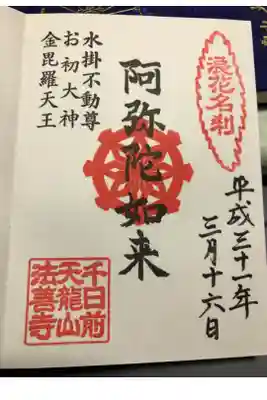 浪花名刹
平成三十一年
三月十六日
阿弥陀如来
水掛不動尊
お初大神
金毘羅天王
千日前
天龍山
法善寺